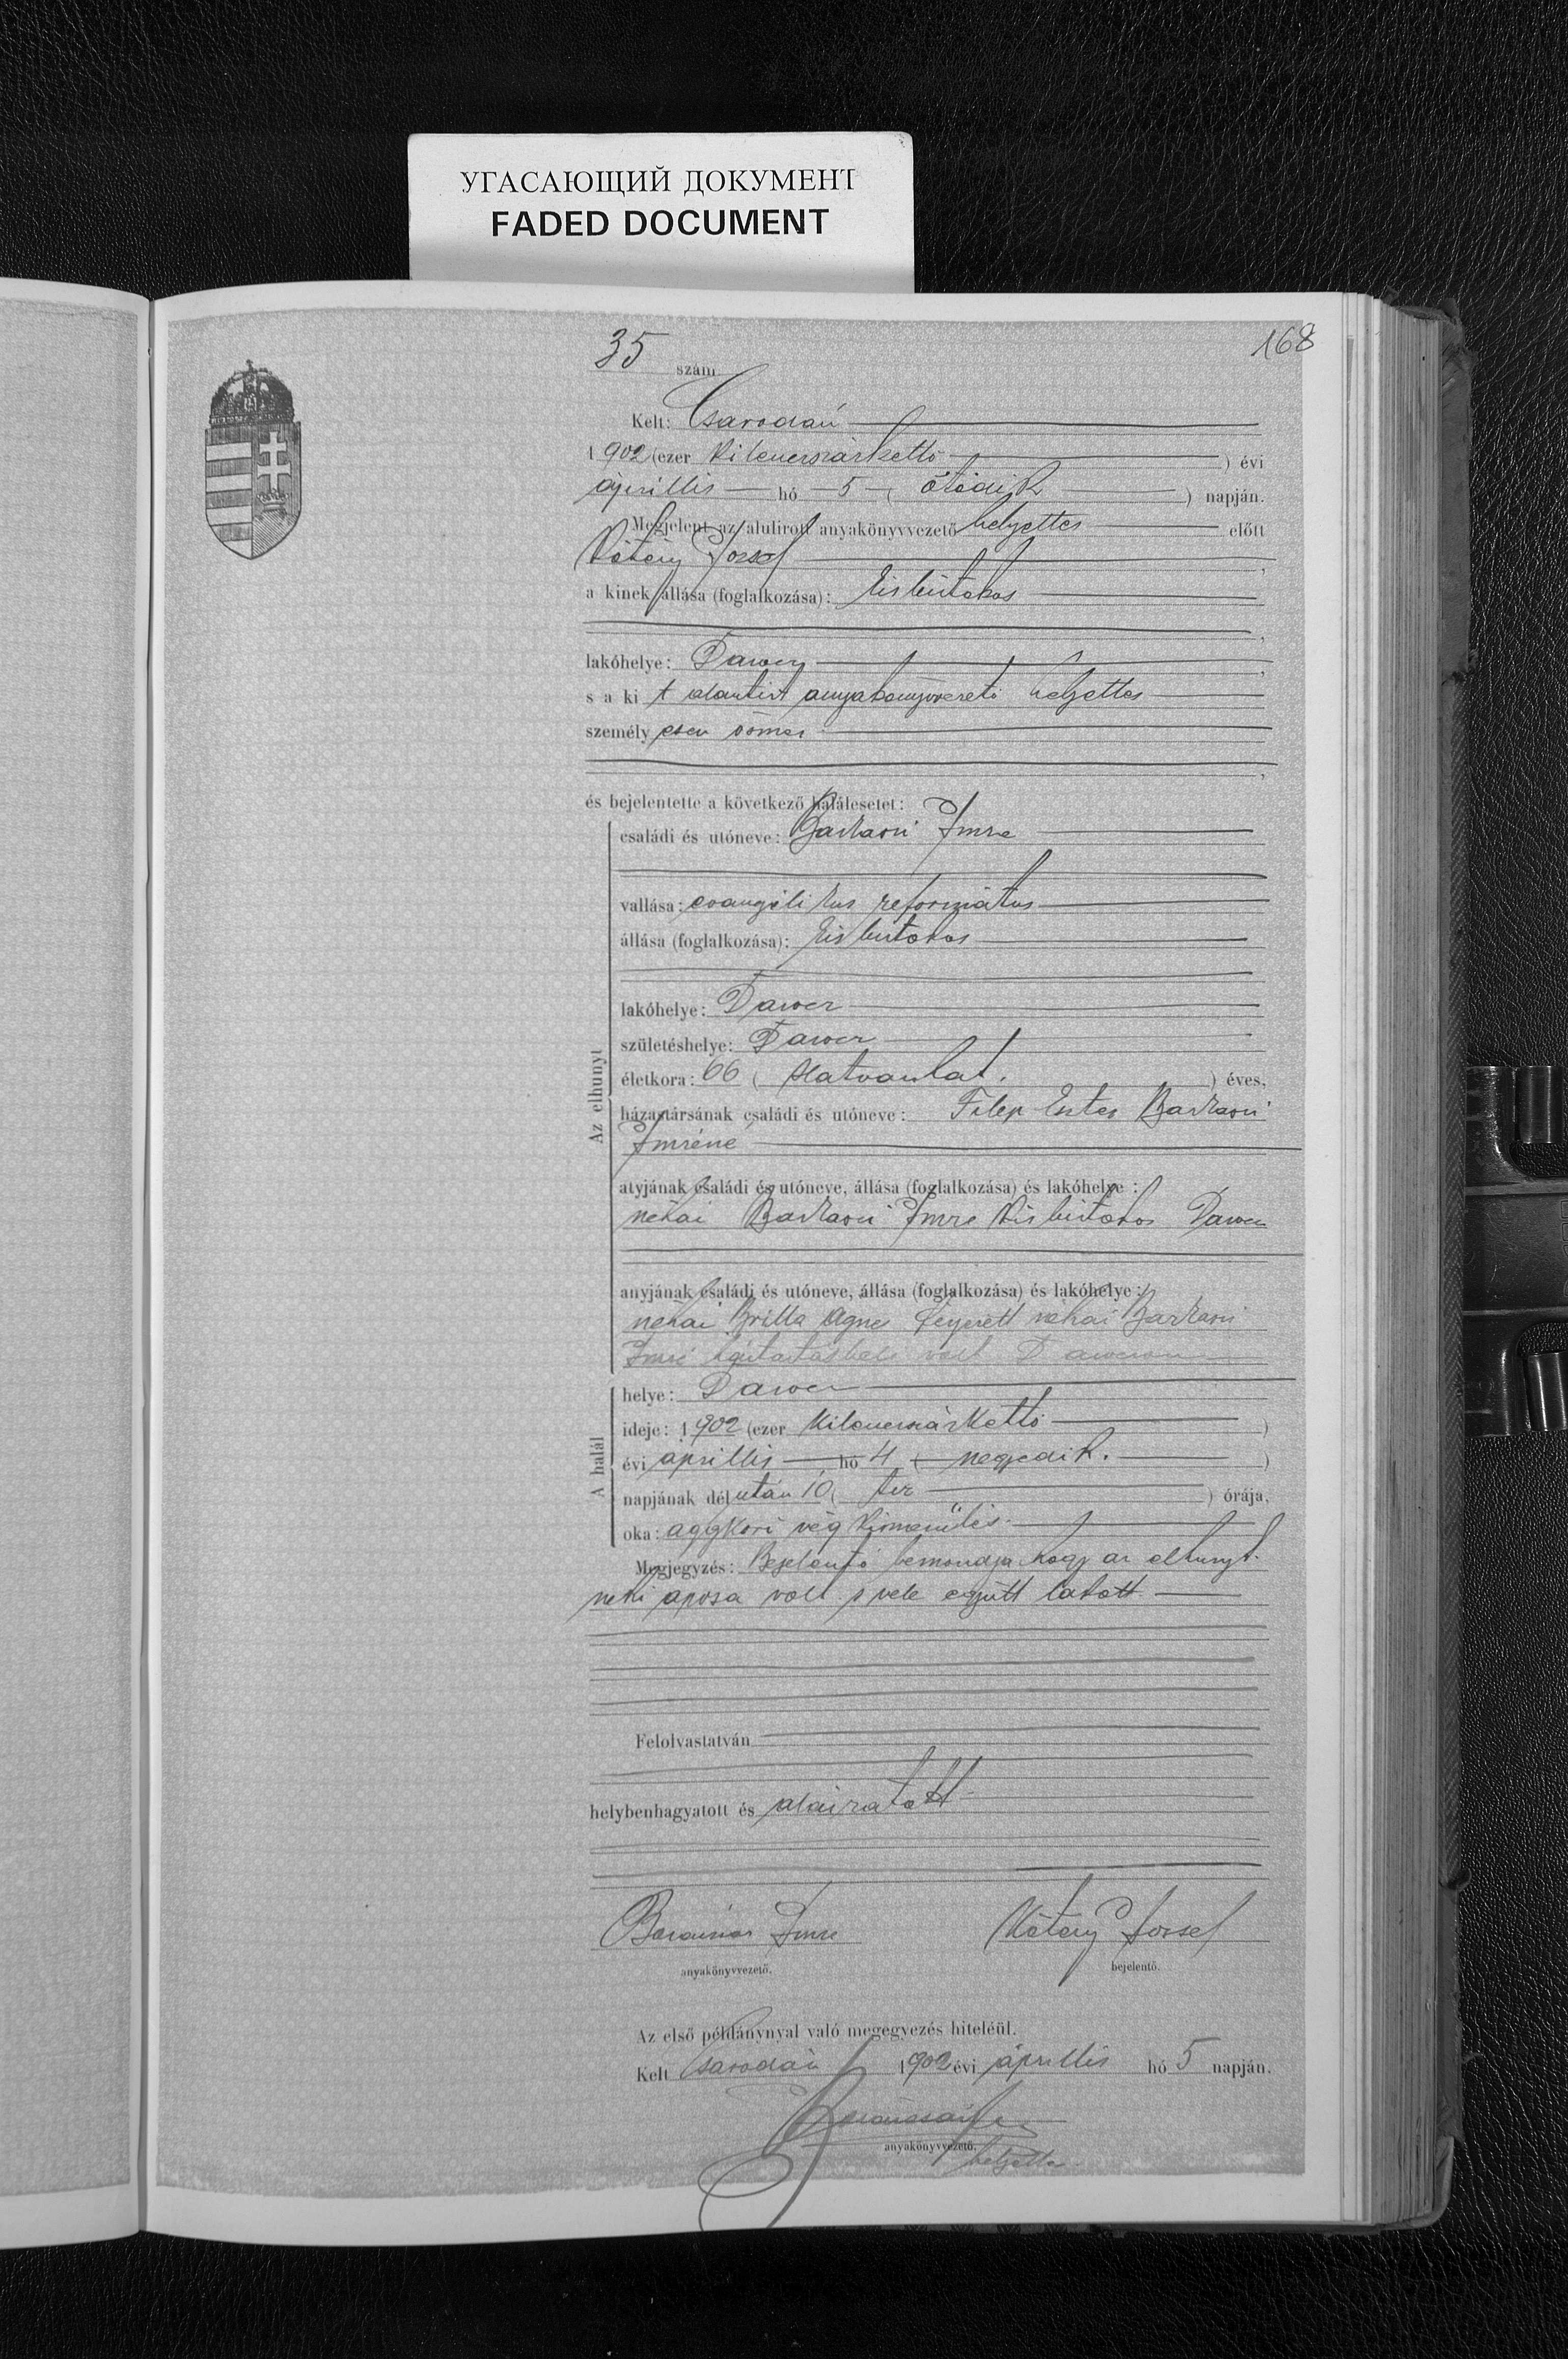 УГАСАЮЩИЙ ДОКУМЕНТ
FADED DOCUMENT
168
35 szám
Kelt: Csarodán
1902 (ezer kilencszázkettő ) évi
áprillis hó 5 ( ötödik ) napján.
Megjelent az alulirott anyakönyvvezető helyettes előtt
József
a kinek állása (foglalkozása): kisbirtokos
lakóhelye:
s a ki t alantirt anyakönyvvezető helyettes
személyesen ismer
és bejelentette a következő halálesetet:
Az elhunyt
családi és utóneve: Barkaszi Imre
vallása: evangélikus református
állása (foglalkozása): kisbirtokos
lakóhelye:
születéshelye:
életkora: 66 ( Hatvanhat. ) éves,
házastársának családi és utóneve: Filep Eszter Barkaszi
Imréné
atyjának családi és utóneve, állása (foglalkozása) és lakóhelye:
néhai Barkaszi Imre kisbirtokos
anyjának családi és utóneve, állása (foglalkozása) és lakóhelye:
néhai Ágnes néhai Barkaszi
Imre volt
A halál
helye:
ideje: 1902 (ezer kilencszázkettő )
évi áprillis hó 4 ( negyedik. )
napjának délután 10 ( tíz ) órája,
oka: aggkori végkimerülés.
Megjegyzés: Bejelentő bemondja hogy az elhunyt
neki apósa volt s vele együtt lakott
Felolvastatván
helybenhagyatott és aláiratott
Imre
József
anyakönyvvezető.
bejelentő.
Az első példánynyal való megegyezés hiteléül.
Kelt Csarodán 1902 évi áprillis hó 5 napján.
anyakönyvvezető.
helyettes